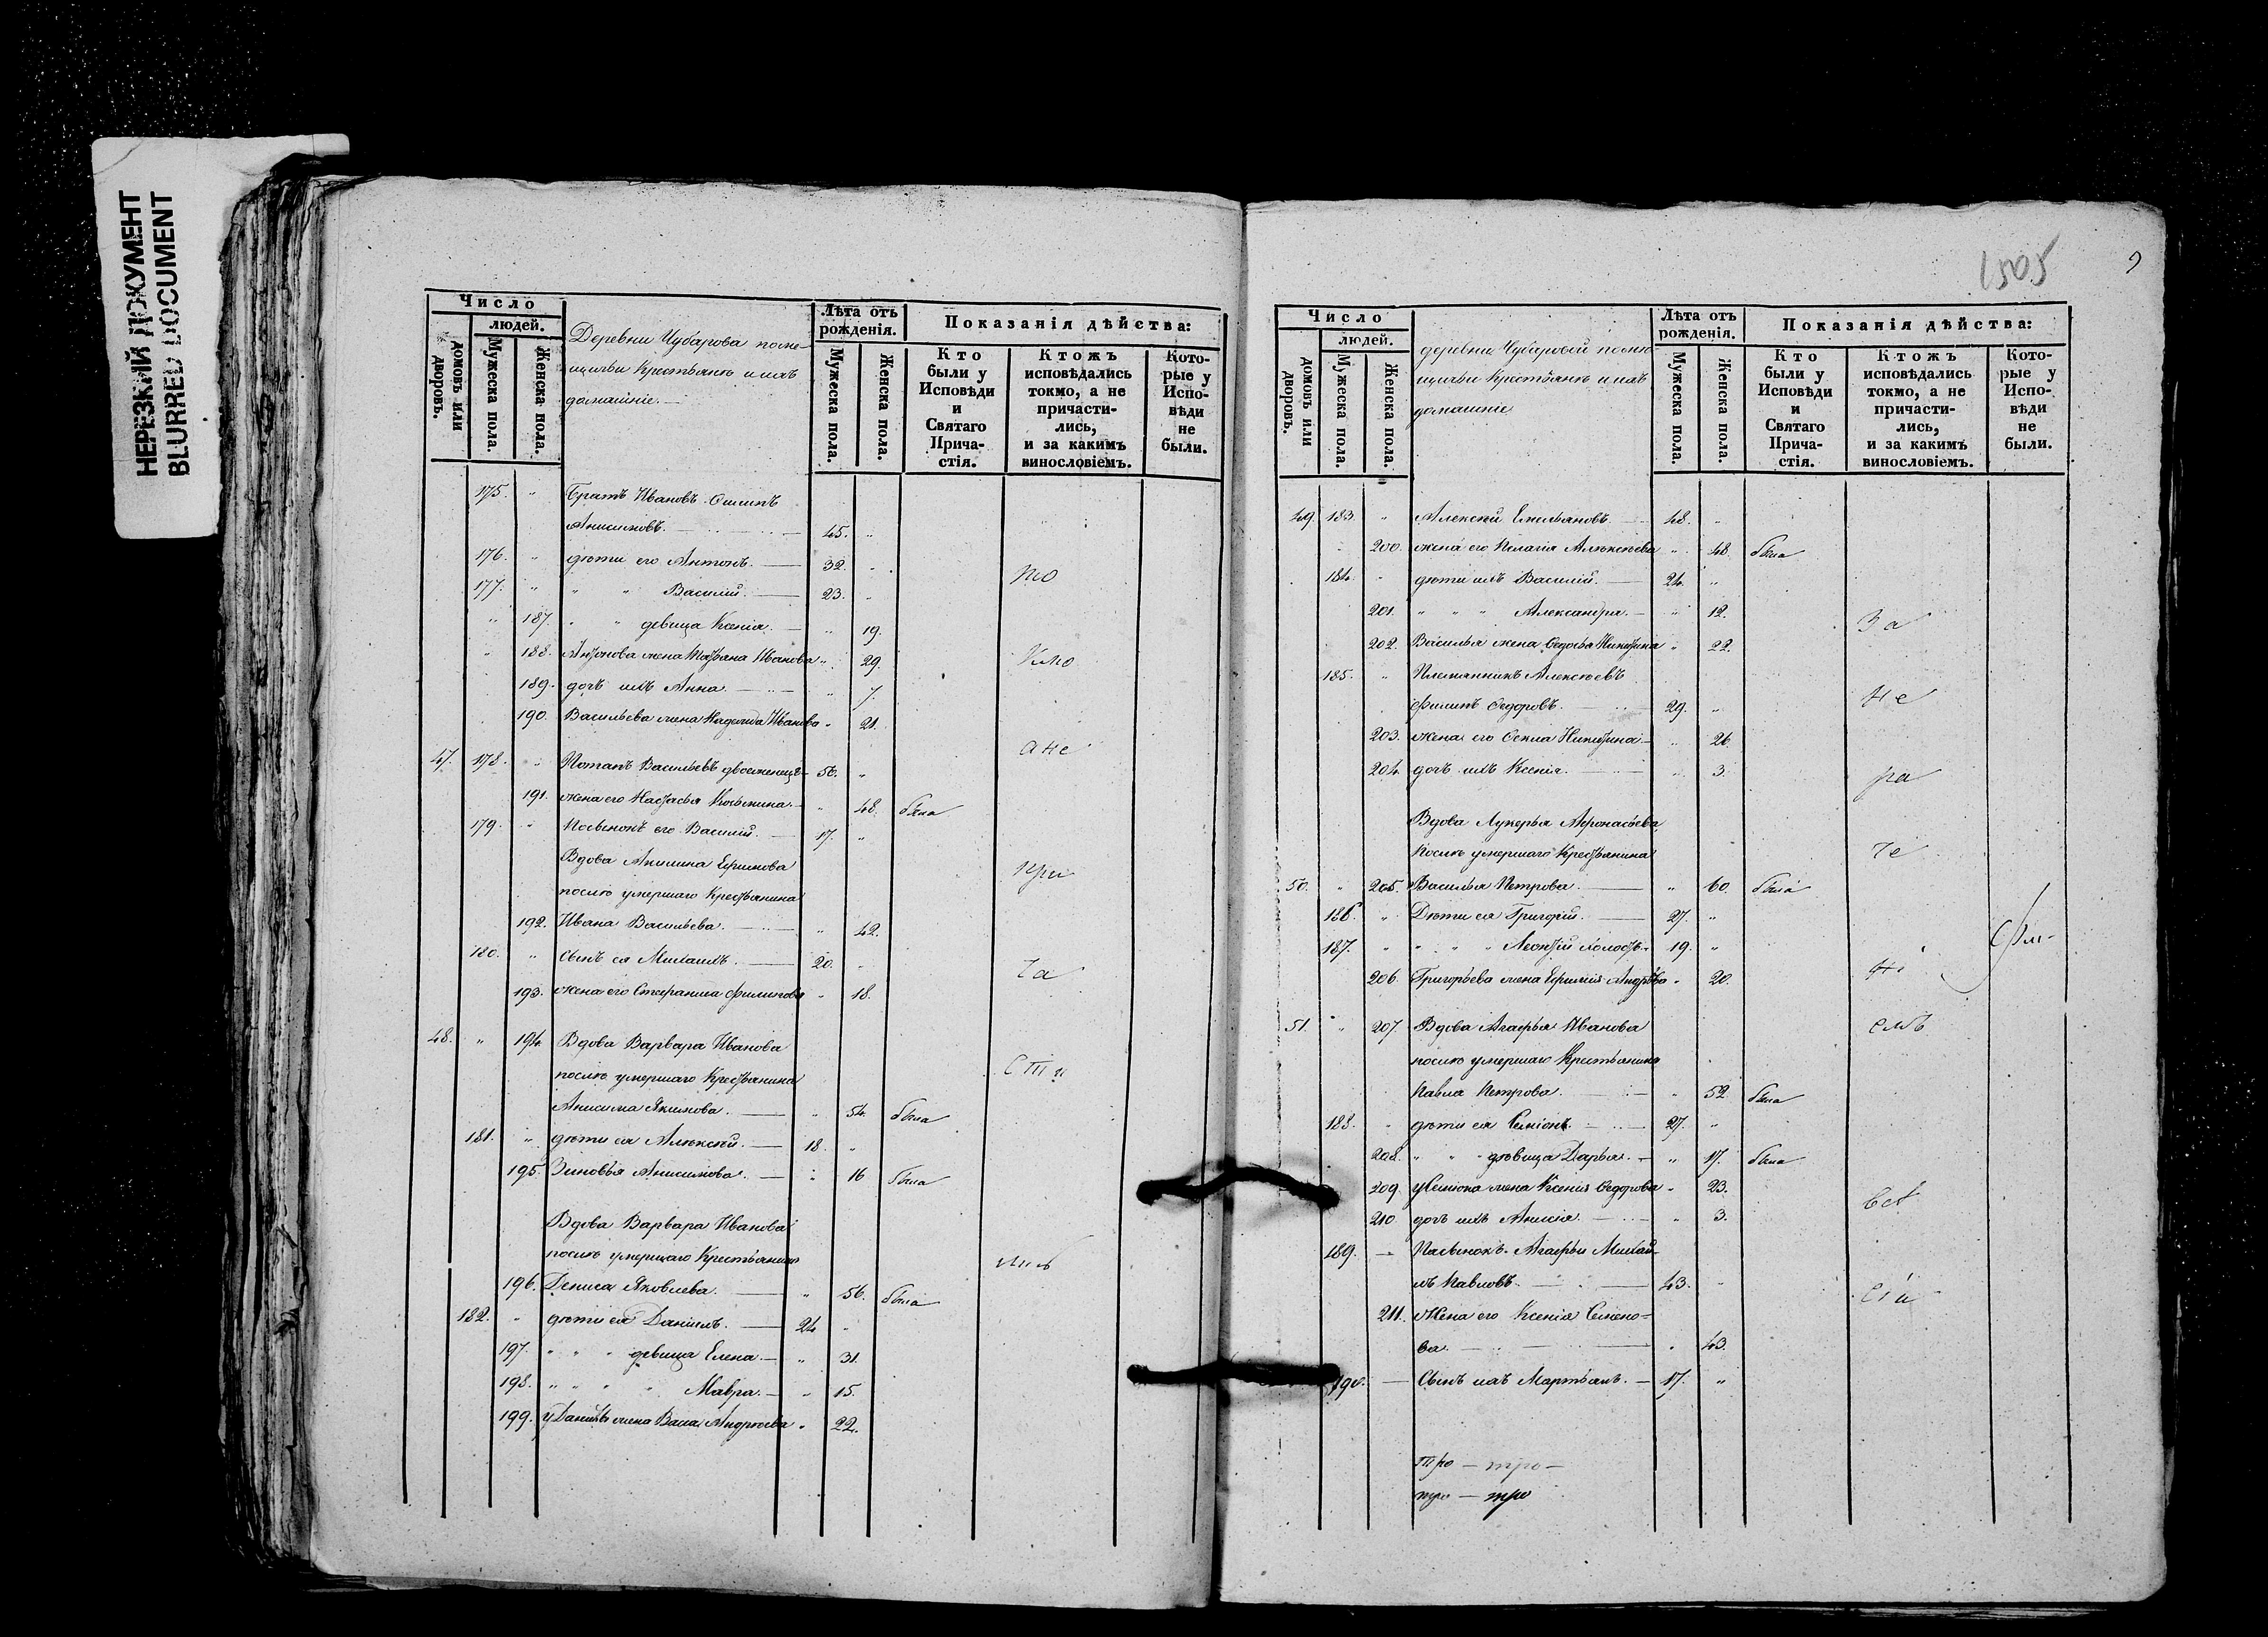 НЕРЕЗКИЙ ДОКУМЕНТ
BLURRED DOCUMENT
Число
людей.
домовъ или дворовъ.
Мужеска пола.
Женска пола.
Деревни Чубарова поме-
щичьи Крестьяне и ихъ
домашніе.
Лѣта отъ рожденія.
Мужеска пола.
Женска пола.
Показанія дѣйства:
Кто были у Исповѣди и Святаго Прича-стія.
Ктожъ исповѣдались токмо, а не причасти-лись, и за какимъ винословіемъ.
Кото-рые у Испо-вѣди не были.
175. " Братъ Ивановъ Осипъ
Анисимовъ. — 45. "
176. " дѣти его Антонъ. — 32. "
то
177. " " " Василій. — 23. "
" 187. " " девица Ксенія. — " 19.
" 188. Антонова жена Татьяна Иванова " 29.
кмо
189. дочь ихъ Анна. — " 7.
190. Васильева жена Надежда Иванова " 21.
а не
47. 178. " Потапъ Васильевъ двоеженецъ — 56. "
191. жена его Настасья Козьмина. — " 48. была
179. " Пасынокъ его Василій. — 17. "
Вдова Акилина Ефимова
при
послѣ умершаго Крестьянина
192. Ивана Васильева. — " 42.
180. " Сынъ ея Михаилъ. — 20. "
ча
193. жена его Степанида Филипова " 18.
48. " 194. Вдова Варвара Иванова
сти
послѣ умершаго Крестьянина
Анисима Якимова. — " 54. была
181. " дѣти ея Алексѣй. — 18. "
195. Зиновья Анисимова. — " 16 была
Вдова Варвара Иванова
послѣ умершаго Крестьянина
лись
196. Дениса Яковлева. — " 56. была
182. " дѣти ея Даніилъ. — 24 "
197. " " " девица Елена — " 31.
198. " " " " Мавра. — " 15.
199. у Даніила жена Васса Андреева " 22.
1505
9
Число
людей.
домовъ или дворовъ.
Мужеска пола.
Женска пола.
деревни Чубаровой помѣ
щичьи Крестьяне и ихъ
домашніе
Лѣта отъ рожденія.
Мужеска пола.
Женска пола.
Показанія дѣйства:
Кто были у Исповѣди и Святаго Прича-стія.
Ктожъ исповѣдались токмо, а не причасти-лись, и за какимъ винословіемъ.
Кото-рые у Испо-вѣди не были.
49. 183. " Алексѣй Емельяновъ. — 48. "
200. жена его Пелагія Алексѣева " 48. была
184. " дѣти ихъ Василій. — 24. "
201. " " " Александра. — " 12.
За
202. Василья жена Федосья Никитина " 22.
185. " Племянникъ Алексѣевъ
не
Филипъ Федоровъ. — 29. "
203. жена его Никитина — " 26.
204. дочь ихъ Ксенія. — " 3.
ра
Вдова Лукерья Афонасьева
Послѣ умершаго Крестьянина
че
50. " 205. Василья Петрова. — " 60. была
186. " Дѣти ея Григорій. — 27. "
187. " " " " Леонтій холостъ — 19. "
206. Григорьева жена Ефимія Андрѣева " 20.
ні
51. " 207. Вдова Агафья Иванова
емъ
послѣ умершаго Крестьянина
Павла Петрова. — " 52 была
188. " дѣти ея Семіонъ. — 27. "
208. " " " дѣвица Дарья. — " 17. была
209. у Семіона жена Ксенія Федорова " 23.
210 дочь ихъ Анисія. — " 3.
189. — Пасынокъ Агафьи Михай-
лъ Павловъ. — 43. "
211. Жена его Ксенія Семено-
ва. — " 43.
190. — Сынъ ихъ Мартьянъ. — 17. "
тро — тро —
тро — тро